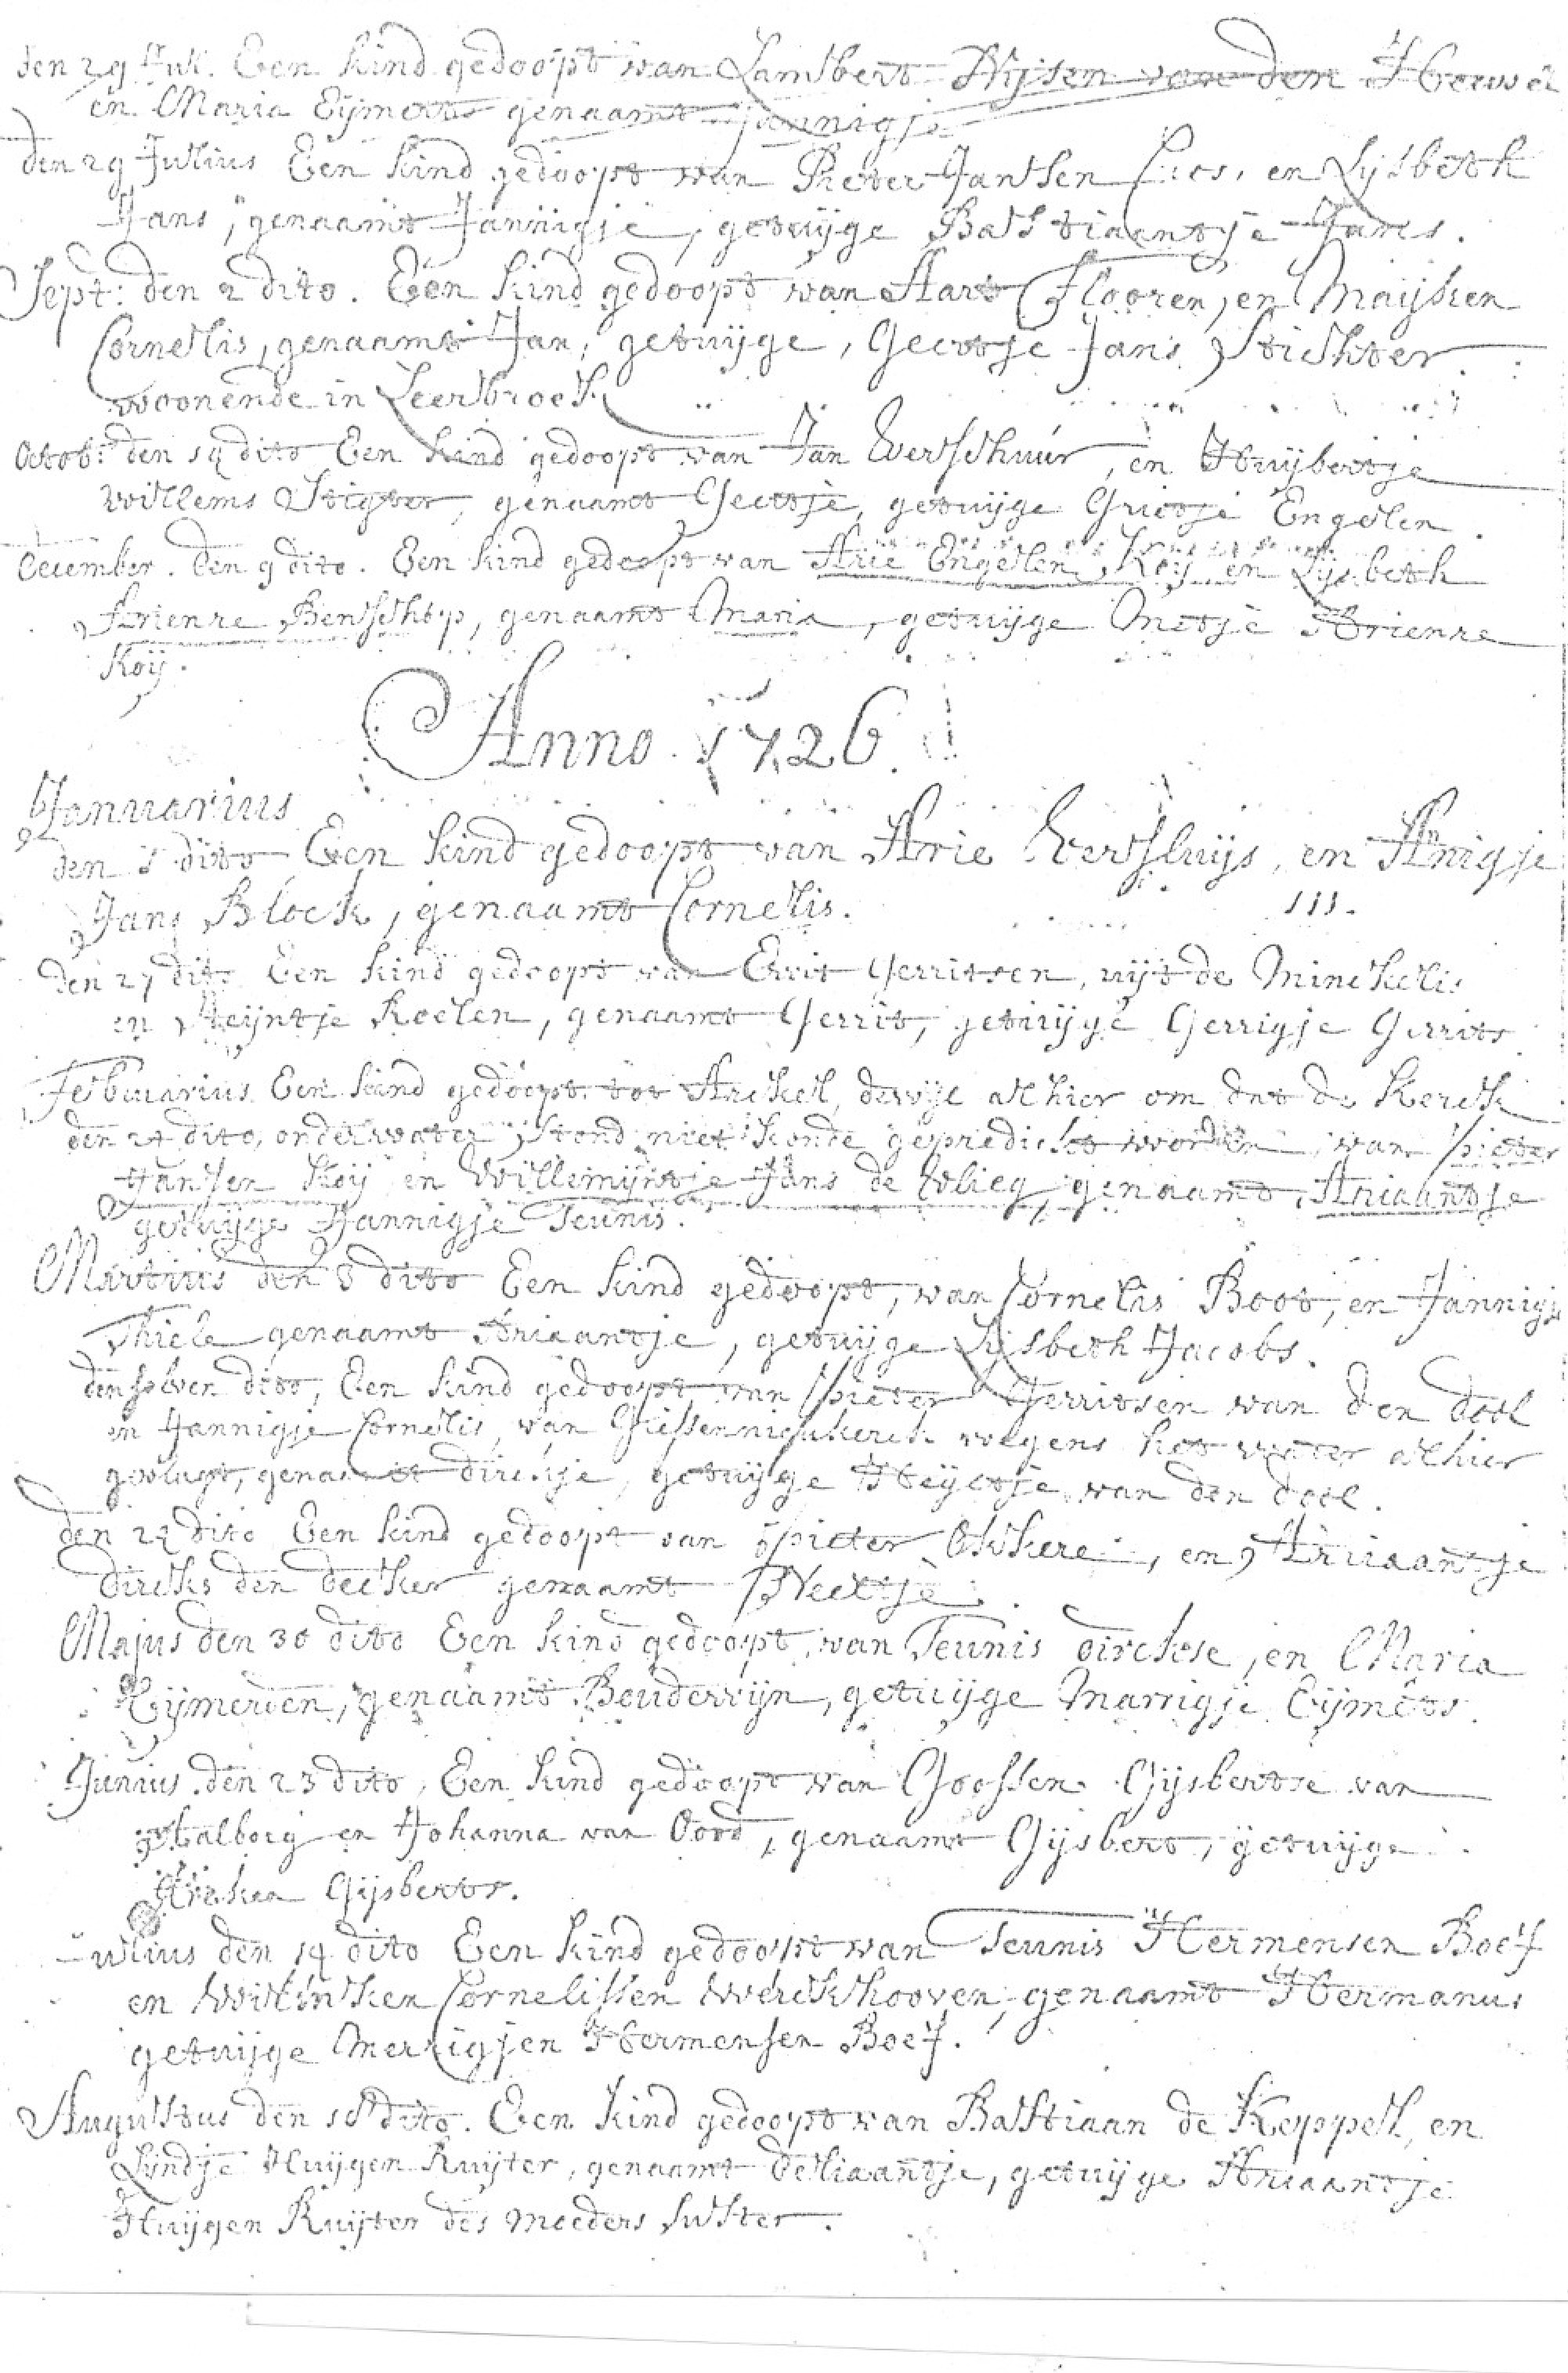 den 29 Jul. Een kind gedoopt van Lambert Thijsen van den Heuvel
en Maria Eijmerts genaamt Jannigje
den 29 Julius Een kind gedoopt van Pieter Jansen en Lijsbeth
Jans, genaamt Jannigje, getuijge Bastiaantje Jans.
Sept: den 2 dito. Een kind gedoopt van Aart Flooren, en Maijken
Cornelis, genaamt Jan, getuijge, Geertje Jans Stichter
woonende in Leerbroek
Octob: den 14 dito Een kind gedoopt van Jan Verschuur, en Huijbertje
Willems Stigter, genaamt Geertje, getuijge Grietje Engelen.
December. den 9 dito. Een kind gedoopt van Arie Engelen Koij en Lijsbeth
Arienze Benschop, genaamt Maria, getuijge Metje Arienze
Koij.
Anno 1726.
Januarius
den dito Een kind gedoopt van Arie Versluijs, en Annigje
Jans Block, genaamt Cornelis. 111.
den 27 dito Een kind gedoopt van Errit Gerritsen, uijt de Minckelis
en Steijntje Roelen, genaamt Gerrit, getuijge Gerrigje Gerrits
Februarius Een kind gedoopt tot Arckel, dewijl alhier om dat de Kerck
den 24 dito, onder water stond niet konde gepredickt worden, van Pieter
Jansen Koij en Willemijntje Jans de Vlieg, genaamt, Ariaantje
getuijge Jannigje Teunis.
Martius den 8 dito Een kind gedoopt, van Cornelis Boot, en Jannigje
Thiele genaamt Ariaantje, getuijge Lijsbeth Jacobs.
denselven dito, Een kind gedoopt van Pieter Gerritsen van den dool
en Jannigje Cornelis, van Giessennieukerck wegens het water alhier
gevlugt, genaamt dirckje, getuijge Heijltje van den dool.
den 24 dito Een kind gedoopt van Pieter, en Ariaantje
dircks den decker genaamt Neeltje.
Majus den 30 dito Een kind gedoopt, van Teunis dirckse, en Maria
Eijmerden, genaamt Bouderwijn, getuijge Marrigje Eijmerts.
Junius. den 23 dito, Een kind gedoopt van Goossen Gijsbertse van
Stalborg en Johanna van Oord, genaamt Gijsbert, getuijge
Gijsberts.
Julius den 14 dito Een kind gedoopt van Teunis Hermensen Boef
en Willinken Cornelissen Werckhooven, genaamt Hermanus
getuijge Merrigjen Hermensen Boef.
Augustus den 18 dito. Een kind gedoopt van Bastiaan de Keppel, en
Lijndje Huijgen Ruijter, genaamt Deliaantje, getuijge Ariaantje
Huijgen Ruijter des moeders suster.